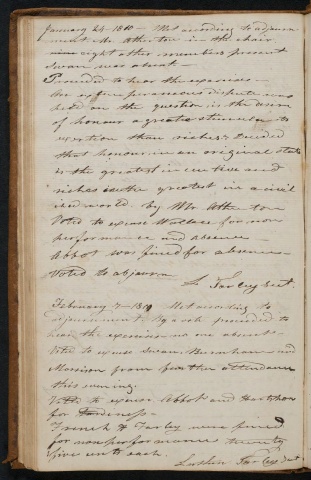 January 24 - 1810 - Met according to adjourn
ment Mr Atherton in the chair
eight other members present
Swan was absent -
Proceeded to hear the exercises -
An extemporaneous dispute was
held on the question is the desire
of honour a greater stimulus to
exertion than riches? Decided
that honour in an original state
is the greatest incentive and
riches is the greatest in a civil
ized world. By Mr Atherton
Voted to excuse Wallace for non
performance and absence -
Abbot was fined for absence
Voted to adjourn
L Farley sect.
February 7 - 1810 Met according to
adjournment. proceeded to
hear the exercises - no one absent -
Voted to excuse Swan, Burnham and
Morrison from further attendance
this evening.
Voted to excuse Abbot and
for
French & Farley were fined
for nonperformance twenty
five cents each.
Luther Farley Sect